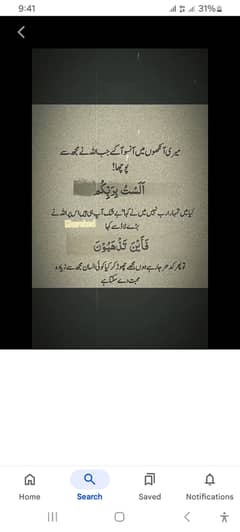 9:41
31%
میری آنکھوں میں آنسو آ گئے جب اللہ نے مجھ سے
پوچھا!
اَلَسْتُ بِرَبِّكُم
کیا میں تمہارا رب نہیں میں نے کہا بے شک آپ ہی ہیں اس پر اللہ نے
بڑے لاڈ سے کہا
فَأَيْنَ تَذْهَبُوْنَ
تو پھر کدھر جا رہے ہوں مجھے چھوڑ کر کیا کوئی انسان مجھ سے زیادہ
محبت دے سکتا ہے
Home
Search
Saved
Notifications